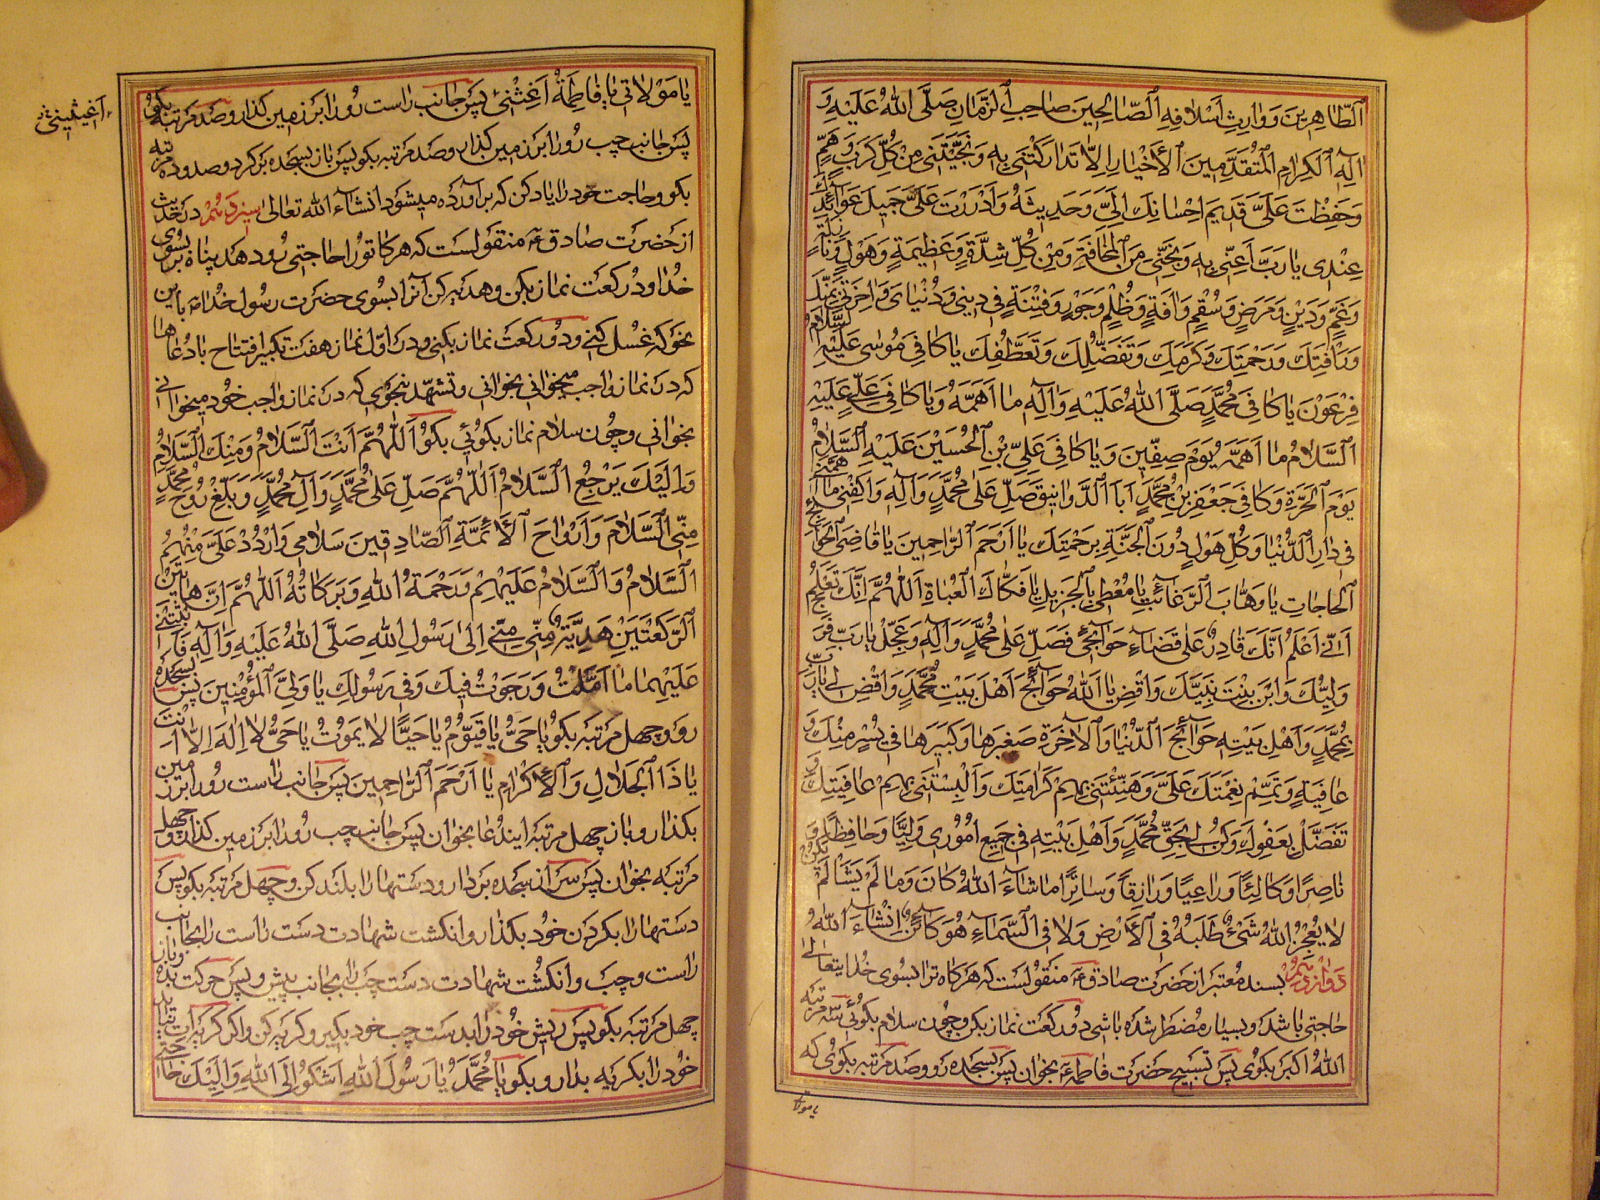 اَلطّاهِرينَ وَ وارِثِ اَسْلافِهِ اَلصّالِحينَ صاحِبِ اَلزَّمانِ صَلَّى اللهُ عَلَيْهِ وَ
آلِهِ اَلْكِرامِ اَلْمُتَقَدِّمينَ اَلْأَخْيارِ اِلّا تَدارَكْتَني بِهِ وَ نَجَّيْتَني مِنْ كُلِّ كَرْبٍ وَ هَمٍّ
وَ حَفِظْتَ عَلَيَّ قَديمَ اِحْسانِكَ اِلَيَّ وَ حَديثَهُ وَ اَدْرَرْتَ عَلَيَّ جَميلَ عَوائِدِكَ
عِنْدي يا رَبِّ اَعِنّي بِهِ وَ نَجِّني مِنَ اَلْمَخافَةِ وَ مِنْ كُلِّ شِدَّةٍ وَ عَظيمَةٍ وَ هَوْلٍ وَ نازِلَةٍ
وَ غَمٍّ وَ دَيْنٍ وَ مَرَضٍ وَ سُقْمٍ وَ آفَةٍ وَ ظُلْمٍ وَ جَوْرٍ وَ فِتْنَةٍ في ديني وَ دُنْيايَ وَ آخِرَتي بِمَنِّكَ
وَ رَأْفَتِكَ وَ رَحْمَتِكَ وَ كَرَمِكَ وَ تَفَضُّلِكَ وَ تَعَطُّفِكَ يا كافِيَ مُوسى عَلَيْهِ السَّلامُ
فِرْعَوْنَ يا كافِيَ مُحَمَّدٍ صَلَّى اللهُ عَلَيْهِ وَ آلِهِ ما اَهَمَّهُ وَ يا كافِيَ عَلِيٍّ عَلَيْهِ
اَلسَّلامُ ما اَهَمَّهُ يَوْمَ صِفّينَ وَ يا كافِيَ عَلِيِّ بْنِ اَلْحُسَيْنِ عَلَيْهِ السَّلامُ
يَوْمَ اَلْحَرَّةِ وَ كافِيَ جَعْفَرِ بْنِ مُحَمَّدٍ اَبَا اَلدَّوانيقِ صَلِّ عَلى مُحَمَّدٍ وَ آلِهِ وَ اكْفِني ما اَهَمَّني
في دارِ اَلدُّنْيا وَ كُلِّ هَوْلٍ دُونَ اَلْجَنَّةِ بِرَحْمَتِكَ يا اَرْحَمَ اَلرّاحِمينَ يا قاضِيَ اَلْحَوائِجِ
اَلْحاجاتِ يا وَهّابَ اَلرَّغائِبِ يا مُعْطِيَ اَلْجَزيلِ يا فَكّاكَ اَلْعُناةِ اَللّهُمَّ اِنَّكَ تَعْلَمُ
اَنّي اَعْلَمُ اَنَّكَ قادِرٌ عَلى قَضاءِ حَوائِجي فَصَلِّ عَلى مُحَمَّدٍ وَ آلِهِ وَ عَجِّلْ يا رَبِّ فَرَجَ
وَلِيِّكَ وَ ابْنِ بِنْتِ نَبِيِّكَ وَ اقْضِ يا اَللهُ حَوائِجَ اَهْلِ بَيْتِ مُحَمَّدٍ وَ اقْضِ لي يا رَبِّ
بِمُحَمَّدٍ وَ اَهْلِ بَيْتِهِ حَوائِجَ اَلدُّنْيا وَ اَلْآخِرَةِ صَغيرَها وَ كَبيرَها في يُسْرٍ مِنْكَ وَ
عافِيَةٍ وَ تُتَمِّمُ نِعْمَتَكَ عَلَيَّ وَ هَنِّئْني بِهِمْ كَرامَتَكَ وَ اَلْبِسْني بِهِمْ عافِيَتَكَ وَ
تَفَضَّلْ بِعَفْوِكَ وَ كُنْ لي بِحَقِّ مُحَمَّدٍ وَ اَهْلِ بَيْتِهِ في جَميعِ اُمُوري وَلِيًّا وَ حافِظًا وَ
ناصِرًا وَ كالِئًا وَ راعِيًا وَ رازِقًا وَ ساتِرًا ما شاءَ اللهُ كانَ وَ ما لَمْ يَشَأْ لَمْ يَكُنْ
لا يُعْجِزُ اللهَ شَيْءٌ طَلَبَهُ في اَلْأَرْضِ وَ لا في اَلسَّماءِ هُوَ كائِنٌ اِنْ شاءَ اللهُ
دوازدهم بسند معتبر از حضرت صادق ع منقولست كه هركاه ترا بسوى خدا يتعالى
حاجتى باشد و بسيار مضطر شده باشى دو ركعت نماز بكن و چون سلام بكوئى سه مرتبه
الله اكبر بكوى پس تسبيح حضرت فاطمه ع بخوان پس بسجده رو و صد مرتبه بكوى كه
يا مولا
يا مَوْلاتي يا فاطِمَةُ اَغِثْني پس جانب راست رو را بر زمين كذار و صد مرتبه بكو
اَغيثيني
پس جانب چپ رو را بر زمين كذار و صد مرتبه بكو پس باز بسجده بركرد و صد و ده مرتبه
بكو و حاجت خود را ياد كن كه برآورده ميشود انشاء الله تعالى سيزدهم در حديث
از حضرت صادق ع منقولست كه هركاه تو را حاجتى رو دهد پناه بر بسوى
خدا و دو ركعت نماز بكن و هديه كن آنرا بسوى حضرت رسول خدا ص باين
نحو كه غسل كنى و دو ركعت نماز بكنى و در اول نماز هفت تكبير افتتاح با دعاها
كه در نماز واجب ميخوانى بخوانى و تشهد بنحوى كه در نماز واجب خود ميخوانى
بخوانى و چون سلام نماز بكوئى بكو اَللّهُمَّ اَنْتَ اَلسَّلامُ وَ مِنْكَ اَلسَّلامُ
وَ اِلَيْكَ يَرْجِعُ اَلسَّلامُ اَللّهُمَّ صَلِّ عَلى مُحَمَّدٍ وَ آلِ مُحَمَّدٍ وَ بَلِّغْ رُوحَ مُحَمَّدٍ
مِنِّي اَلسَّلامَ وَ اَرْواحَ اَلْأَئِمَّةِ اَلصّادِقينَ سَلامي وَ ارْدُدْ عَلَيَّ مِنْهُمُ
اَلسَّلامُ وَ اَلسَّلامُ عَلَيْهِمْ وَ رَحْمَةُ اللهِ وَ بَرَكاتُهُ اَللّهُمَّ اِنَّ هاتَيْنِ
اَلرَّكْعَتَيْنِ هَدِيَّةٌ مِنّي اِلى رَسُولِ اللهِ صَلَّى اللهُ عَلَيْهِ وَ آلِهِ فَأَثِبْني
عَلَيْهِما ما اَمَّلْتُ وَ رَجَوْتُ فيكَ وَ في رَسُولِكَ يا وَلِيَّ اَلْمُؤْمِنينَ پس بسجده
رو و چهل مرتبه بكو يا حَيُّ يا قَيُّومُ يا حَيًّا لا يَمُوتُ يا حَيُّ لا اِلهَ اِلّا اَنْتَ
يا ذَا اَلْجَلالِ وَ اَلْأِكْرامِ يا اَرْحَمَ اَلرّاحِمينَ پس جانب راست رو را بر زمين
بكذار و باز چهل مرتبه ايندعا بخوان پس جانب چپ رو را بر زمين كذار و چهل
مرتبه بخوان پس سر از سجده بردار و دستها را بلند كن و چهل مرتبه بكو پس
دستها را بكردن خود بكذار و انكشت شهادت دست راست را بجانب
راست و چپ و انكشت شهادت دست چپ را بجانب پيش و پس حركت بده و باز
چهل مرتبه بكو پس ريش خود را بدست چپ خود بكير و كريه كن و اكر كريه ات نيايد
خود را بكريه بدار و بكو يا مُحَمَّدُ يا رَسُولَ اللهِ اَشْكُو اِلَى اللهِ وَ اِلَيْكَ حاجَتي